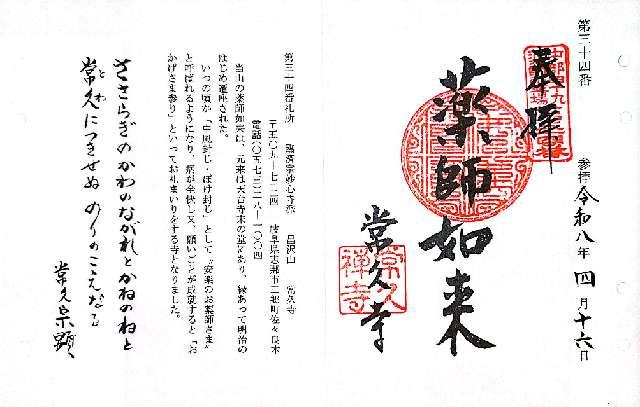 第三十四番
奉拝
薬師如来
常久寺
常久
禅寺
参拝 令和八年 四月十六日
第三十四番札所 臨済宗妙心寺派 昌沢山 常久寺
当山の薬師如来は、元来は天台寺末の堂にあり、縁あって明治の
はじめ遷座された。
いつの頃か「中風封じ・ぼけ封じ」として“安楽のお薬師さま”
と呼ばれるようになり、病が全快し又、願いごとが成就すると「お
かげさま参り」といってお礼まいりをする寺となりました。
きさらぎのかわのながれとかねのねと
常久につきせぬ のりのこえなる
とわ
常久宗顕